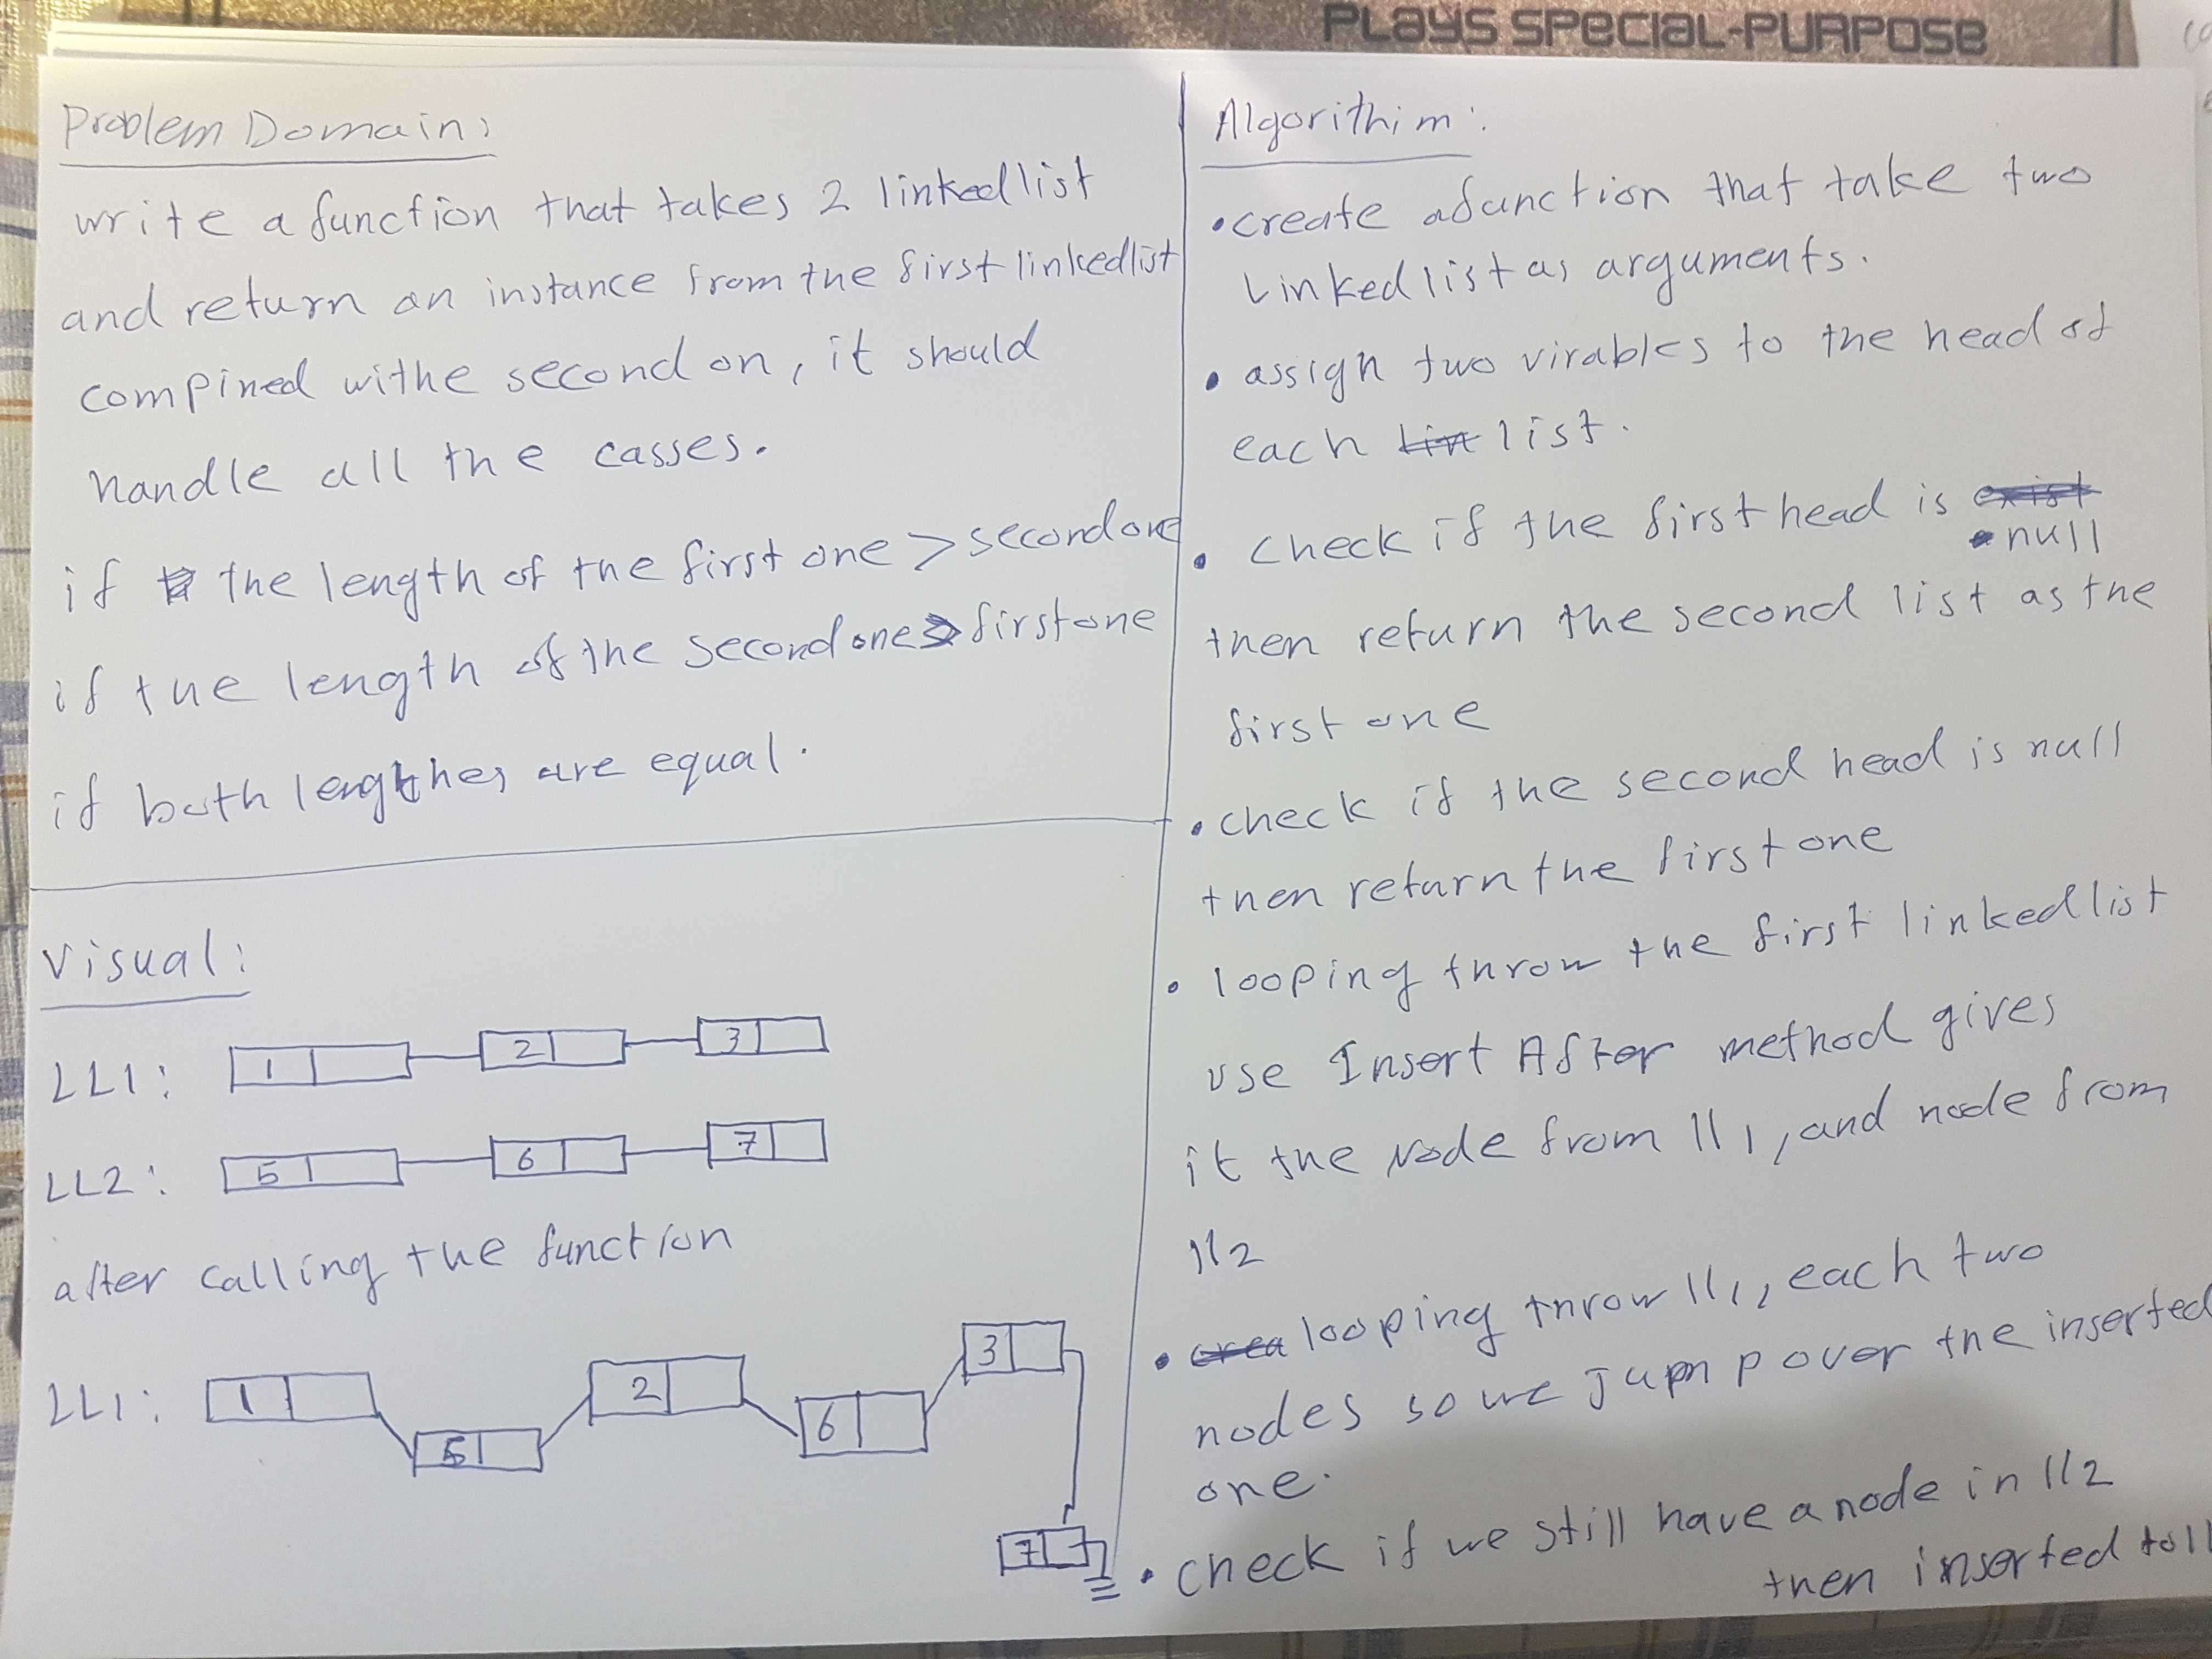 PLAYS SPECIAL-PURPOSE
Problem Domain:
write a function that takes 2 linkedlist
and return an instance from the first linkedlist
compined withe second on, it should
handle all the casses.
if the length of the first one > second one
if the length of the second one > first one
if both lengthes are equal.
Visual:
LL1: 1 2 3
LL2: 5 6 7
after calling the function
LL1: 1 5 2 6 3
7
Algorithim:
• create a function that take two
Linked list as arguments.
• assign two virables to the head of
each list.
• check if the first head is exist
null
then return the second list as the
first one
• check if the second head is null
then return the first one
• looping throw the first linkedlist
use Insert After method gives
it the Node from ll1, and node from
ll2
• looping throw ll1, each two
nodes so we jupm p over the inserted
one.
• check if we still have a node in ll2
then inserted to ll